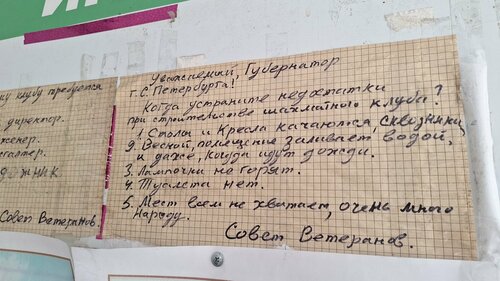 ну клубу требуется
директор.
женер.
галтер.
Совет Ветеранов
Уважаемый, Губернатор
г. С. Петербурга!
Когда устраните недостатки
при строительстве шахматного клуба?
1. Столы и Кресла качаются, сквозняки
2. Весной, помещение заливает водой,
и даже, когда идут дожди.
3. Лампочки не горят.
4. Туалета нет.
5. Мест всем не хватает, очень много
Народу.
Совет Ветеранов.